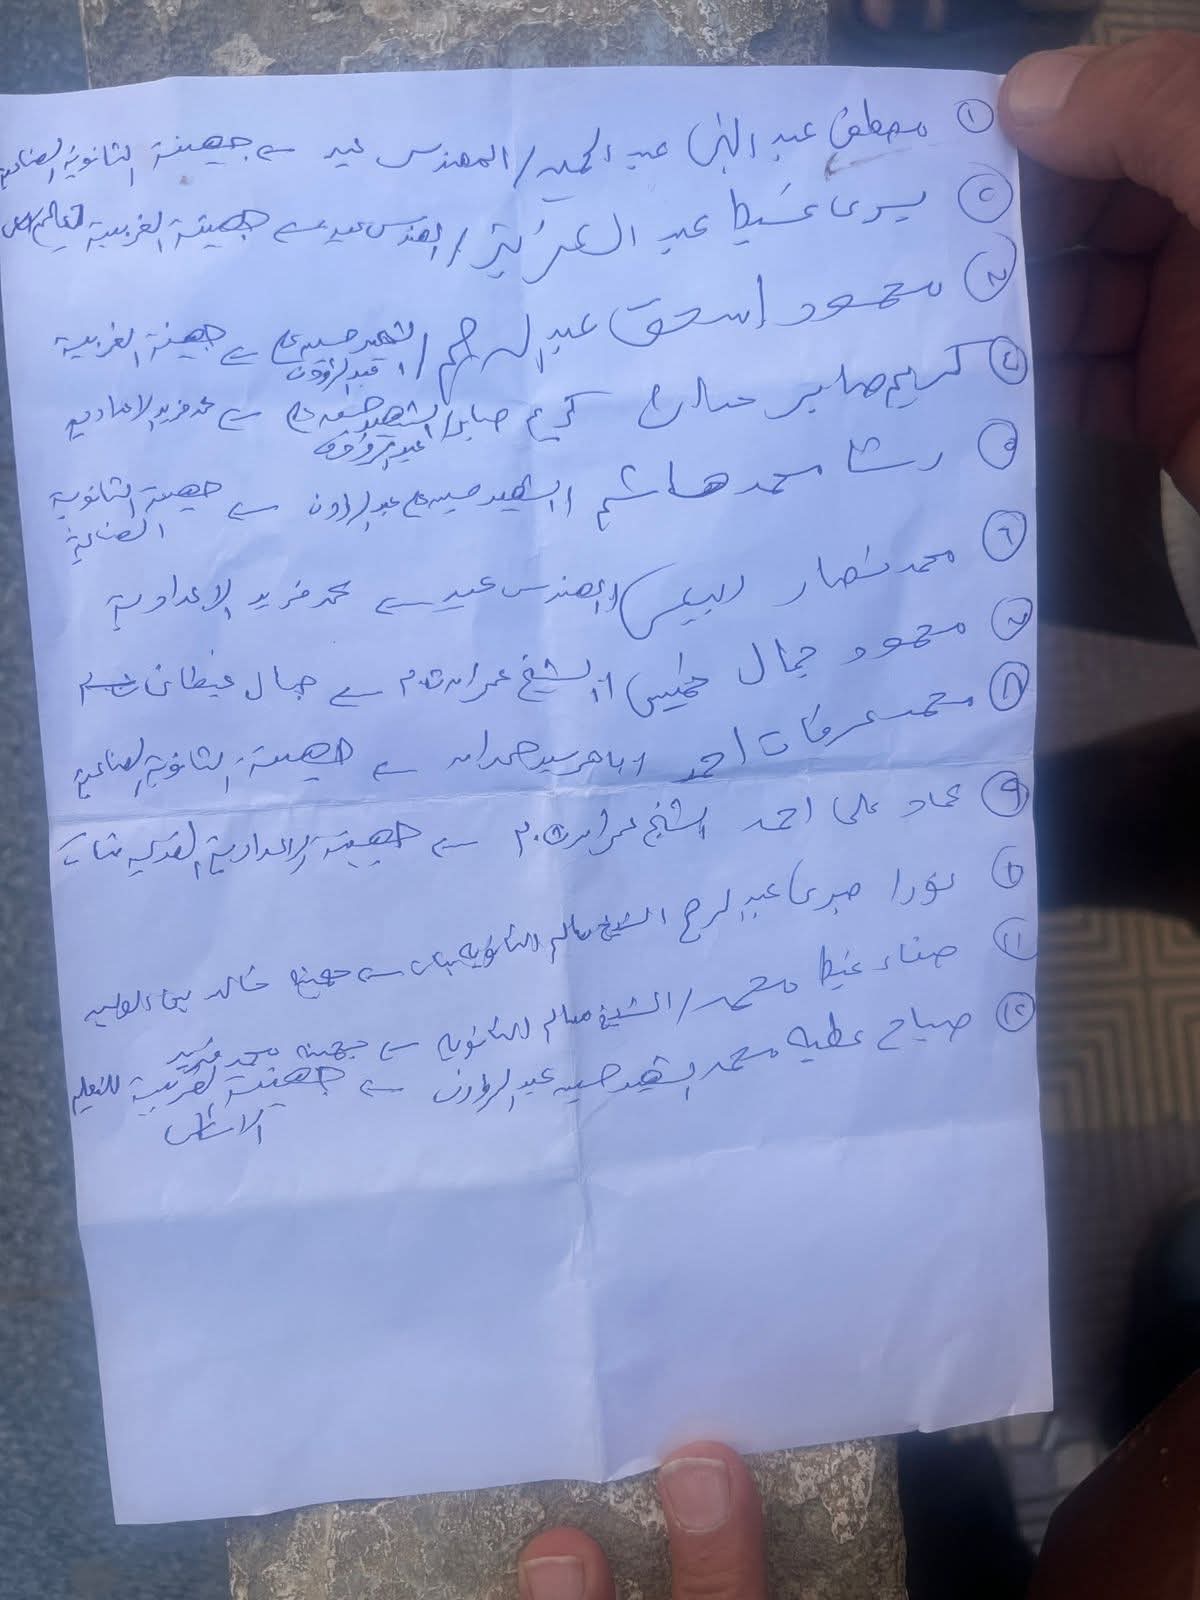 ١ مصطفى عبد النبى عبد الحميد / المهندس عيد ← جهينة الثانوية الصناعية
٢ يسرى غيط عبد العزيز / المهندس عيد ← جهينة الغربية
٣ محمود إسحق عبد الرحيم / الشهيد حسين على عبد الرؤوف ← جهينة الغربية
٤ كريم صابر كريم صابر / الشهيد حسين على عبد الرؤوف ← محمد فريد الاعدادية
٥ رشا محمد هاشم / الشهيد حسين على عبد الرؤوف ← جهينة الثانوية الصناعية
٦ محمد نصار / المهندس عيد ← محمد فريد الاعدادية
٧ محمود جمال خميس / الشيخ عمران ← جمال غيطانى
٨ محمد عرفات احمد / ماهر سيد حمدان ← جهينة الثانوية الصناعية
٩ عماد على احمد الشيخ عمران ← جهينة الاعدادية القديمة بنات
١٠ نورا صبرى عبد الرحيم الشيخ سالم الثانوية بنات ← جهينة خالد بن الوليد
١١ صفاء غيط محمد / الشيخ سالم الثانويه ← جهينه محمد فريد
١٢ صباح عطيه محمد الشهيد حسين عبد الرؤوف ← جهينة الغربية للتعليم الاساسى